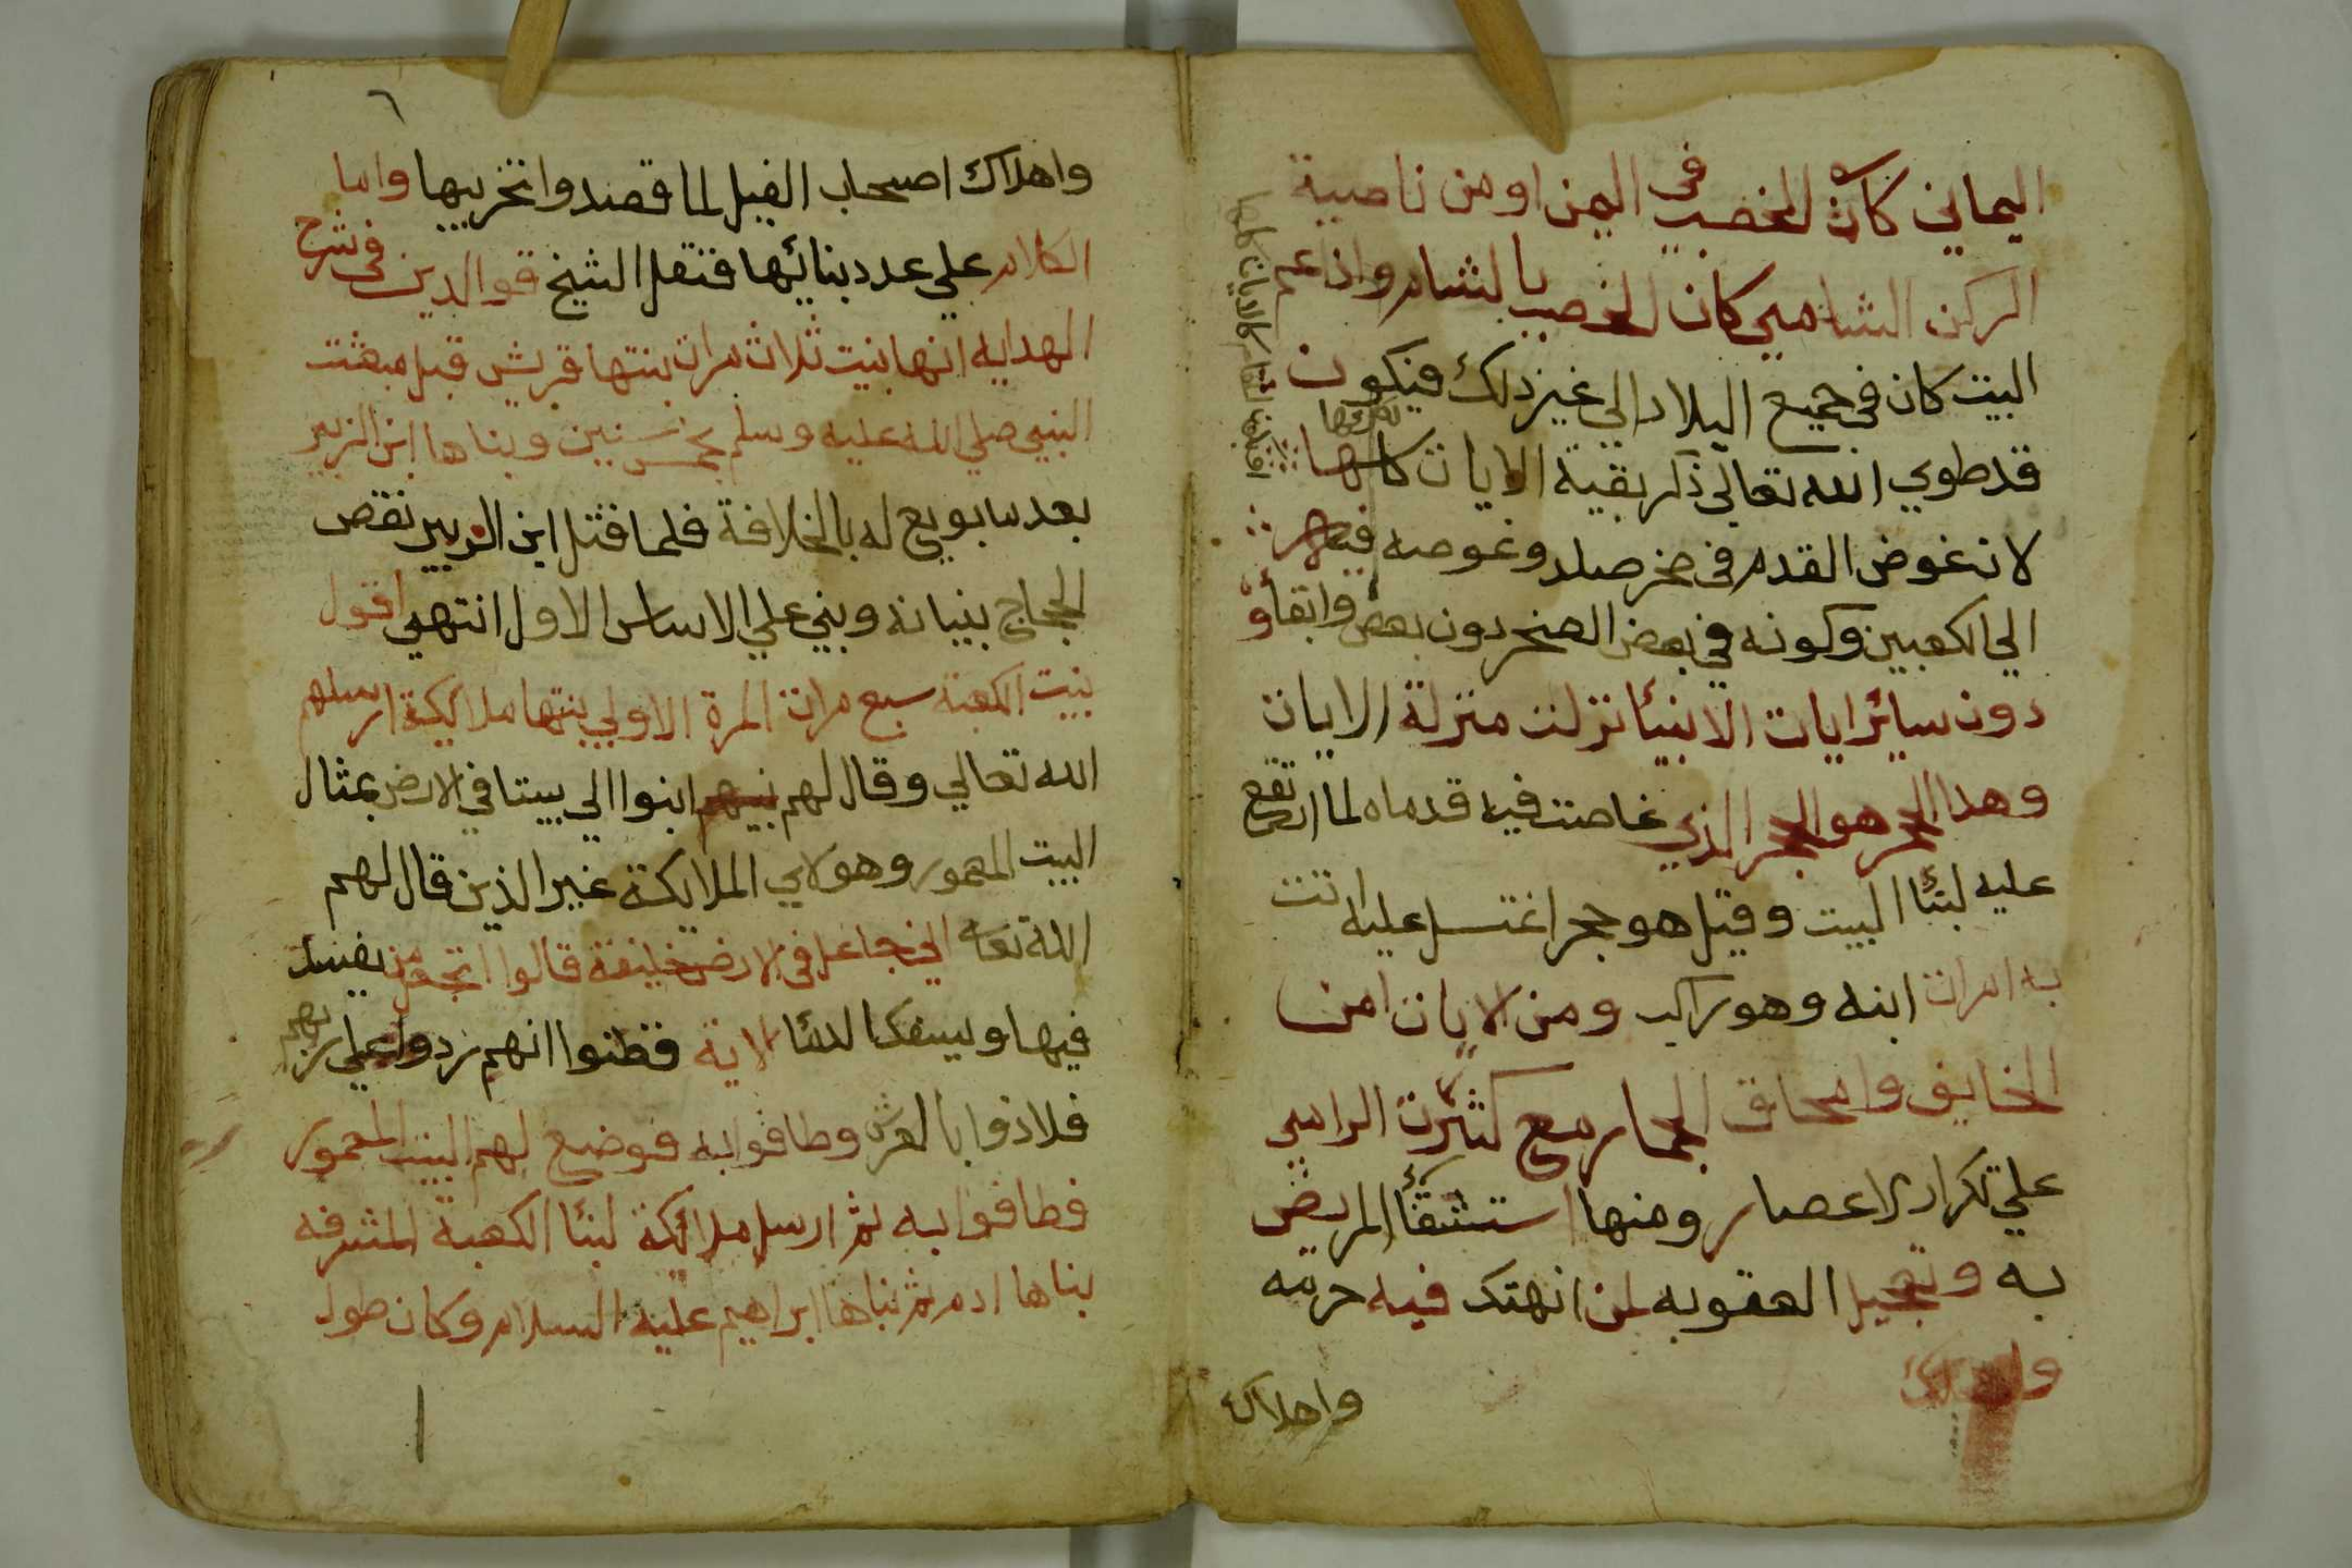 اليماني كان الخصب في اليمن او من ناصية
الركن الشامي كان الخصب بالشام واذا عم
البيت كان في جميع البلاد الي غير ذلك فيكون
قد طوي الله تعالي ذكر بقية الايات كلها
لان غوض القدم في صخر صلد وغوصه فيه
الي الكعبين وكونه في بعض الصخر دون بعض وابقاؤ
دون سائر ايات الانبئا نزلت منزلة الايات
وهدا الحجر هو الحجر الذي غاصت فيه قدماه لما ارتفع
عليه لبنئا البيت وقيل هو حجر اغتسل عليه اتت
به امرات ابنه وهو راكب ومن الايات امن
الخايف وامحاق الجمار مع كثرت الرامي
علي تكرار الاعصار ومنها استشقأ المريض
به وتعجيل العقوبه لمن انهتك فيه حرمته
واهلاك
واهلاك
٦
واهلاك اصحاب الفيل لما قصدوا تخريبها واما
الكلام علي عدد بنائها فنقل الشيخ قوالدين في شرح
الهدايه انها بنيت ثلاث مرات بنتها قريش قبل مبعثت
النبي صلي الله عليه وسلم بخمس سنين وبناها ابن الزبير
بعد ما بويع له بالخلافة فلما قتل ابن الزبير نقض
الحجاج بنيانه وبني علي الاساس الاول انتهي اقول
بنيت الكعبة سبع مرات المرة الاولي بنتها ملائكة ارسلهم
الله تعالي وقال لهم ابنوا الي بيتا في الارض بمثال
البيت المعمور وهولاي الملايكة غير الذين قال لهم
الله تعا اني جاعل في الارض خليفة قالوا اتجعل من يفسد
فيها ويسفك الدمئا الاية فظنوا انهم ردوا علي ربهم
فلاذوا بالعرش وطافوا به فوضع لهم البيت المعمور
فطافوا به ثم ارسل ملائكة لبنئا الكعبة المشرفه
بناها ادم ثم بناها ابراهيم عليه السلام وكان طول